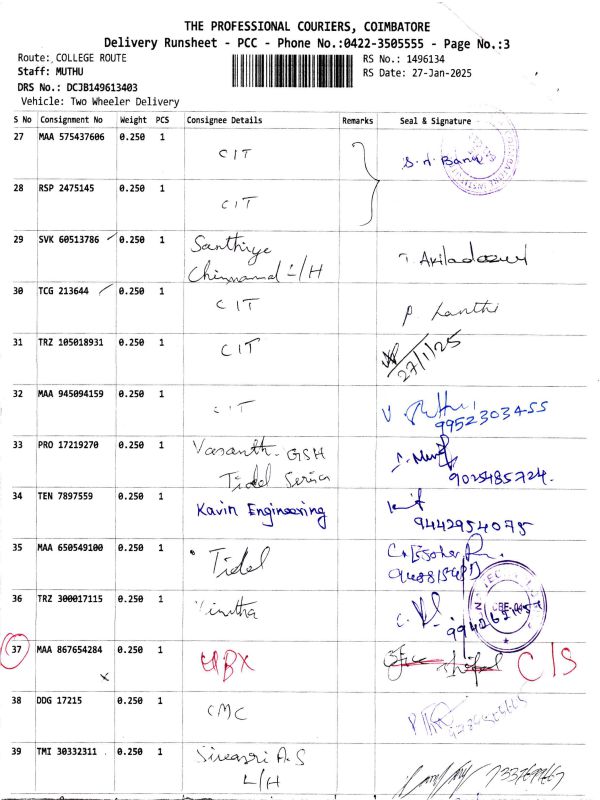 THE PROFESSIONAL COURIERS, COIMBATORE
Delivery Runsheet - PCC - Phone No.:0422-3505555 - Page No.:3
Route: COLLEGE ROUTE
RS No.: 1496134
Staff: MUTHU
RS Date: 27-Jan-2025
DRS No.: DCJB149613403
Vehicle: Two Wheeler Delivery
S No Consignment No Weight PCS Consignee Details Remarks Seal & Signature
27 MAA 575437606 0.250 1 CIT
28 RSP 2475145 0.250 1 CIT
29 SVK 60513786 0.250 1 Santhiya
L/H
30 TCG 213644 0.250 1 CIT
31 TRZ 105018931 0.250 1 CIT 27/1/25
32 MAA 945094159 0.250 1 CIT
9952303455
33 PRO 17219270 0.250 1 Vasanth. GSH
Tidel 9025485724.
34 TEN 7897559 0.250 1 Kavin Engineering
9442954075
35 MAA 650549100 0.250 1 Tidel
36 TRZ 300017115 0.250 1 Vinitha
37 MAA 867654284 0.250 1 UBX C/S
38 DDG 17215 0.250 1 CMC
39 TMI 30332311 0.250 1 A.S
L/H